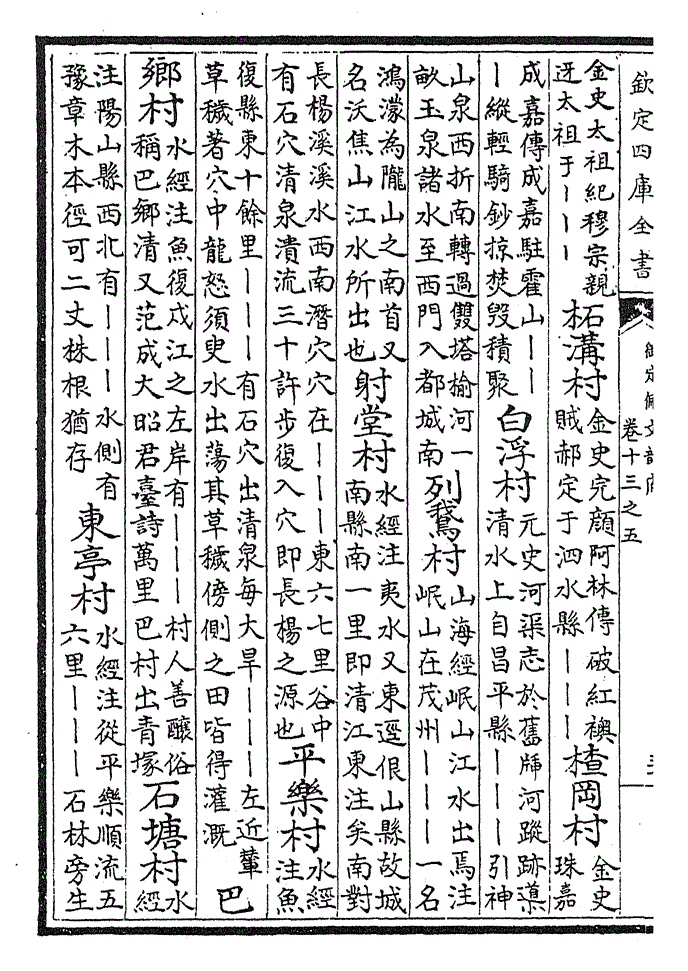 欽定四庫全書
御定佩文韻府
卷十三之五
金史太祖紀穆宗親
迓太祖于〡〡〡
柘溝村
金史完顏阿林傳破紅襖
賊郝定于泗水縣〡〡〡
楂岡村
金史
珠嘉
成嘉傳成嘉駐霍山〡〡
〡縱輕騎鈔掠焚毀積聚
白浮村
元史河渠志於舊牐河蹤跡導
清水上自昌平縣〡〡〡引神
山泉西折南轉過雙塔榆河一
畝玉泉諸水至西門入都城南
列鵞村
山海經岷山江水出焉注
岷山在茂州〡〡〡一名
鴻濛為隴山之南首又
名沃焦山江水所出也
射堂村
水經注夷水又東逕佷山縣故城
南縣南一里即清江東注矣南對
長楊溪溪水西南潛穴穴在〡〡〡東六七里谷中
有石穴清泉潰流三十許步復入穴即長楊之源也
平樂村
水經
注魚
復縣東十餘里〡〡〡有石穴出清泉每大旱〡〡〡左近輦
草穢著穴中龍怒須臾水出蕩其草穢傍側之田皆得灌溉
巴
鄉村
水經注魚復戍江之左岸有〡〡〡村人善釀俗
稱巴鄉清又范成大昭君臺詩萬里巴村出青塚
石塘村
水
經
注陽山縣西北有〡〡〡水側有
豫章木本徑可二丈株根猶存
東亭村
水經注從平樂順流五
六里〡〡〡石林旁生